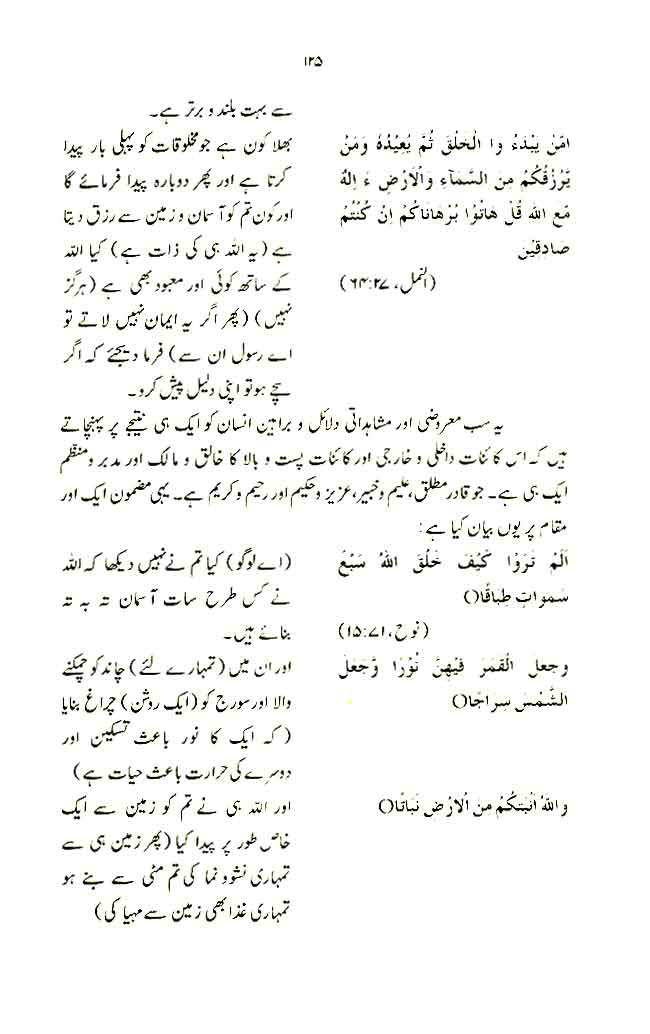 ۱۲۵
سے بہت بلند و برتر ہے۔
امّنْ يَبْدَءُ وا الْخَلْقَ ثُمَّ يُعِيْدُهٗ وَمَنْ
يَّرْزُقُكُمْ مِنَ السَّمَآءِ وَالْاَرْضِ ءَ اِلٰهٌ
مَّعَ اللّٰهِ قُلْ هَاتُوْا بُرْهَانَاكُمْ اِنْ كُنْتُمْ
صَادِقِيْن
(النمل، ۲۷:۶۴)
بھلا کون ہے جو مخلوقات کو پہلی بار پیدا
کرتا ہے اور پھر دوبارہ پیدا فرمائے گا
اور کون تم کو آسمان و زمین سے رزق دیتا
ہے (یہ اللہ ہی کی ذات ہے) کیا اللہ
کے ساتھ کوئی اور معبود بھی ہے (ہرگز
نہیں) (پھر اگر یہ ایمان نہیں لاتے تو
اے رسول ان سے) فرما دیجئے کہ اگر
سچے ہو تو اپنی دلیل پیش کرو۔
یہ سب معروضی اور مشاہداتی دلائل و براہین انسان کو ایک ہی نتیجے پر پہنچاتے
ہیں کہ اس کائنات داخلی و خارجی اور کائنات پست و بالا کا خالق و مالک اور مدبر و منظم
ایک ہی ہے۔ جو قادر مطلق، علیم و خبیر، عزیز و حکیم اور رحیم و کریم ہے۔ یہی مضمون ایک اور
مقام پر یوں بیان کیا ہے:
اَلَمْ تَرَوْا كَيْفَ خَلَقَ اللّٰهُ سَبْعَ
سَمٰواتٍ طِبَاقًا○
(نوح، ۷۱:۱۵)
(اے لوگو) کیا تم نے نہیں دیکھا کہ اللہ
نے کس طرح سات آسمان تہ بہ تہ
بنائے ہیں۔
وجعل الْقَمَرَ فِيْهِنَّ نُوْرًا وَّجَعَلَ
الشَّمْسَ سِرَاجًا○
اور ان میں (تمہارے لئے) چاند کو چمکنے
والا اور سورج کو (ایک روشن) چراغ بنایا
(کہ ایک کا نور باعث تسکین اور
دوسرے کی حرارت باعث حیات ہے)
واللّٰهُ اَنْبَتَكُمْ مِنَ الْاَرْضِ نَبَاتًا○
اور اللہ ہی نے تم کو زمین سے ایک
خاص طور پر پیدا کیا (پھر زمین ہی سے
تمہاری نشوونما کی تم مٹی سے بنے ہو
تمہاری غذا بھی زمین سے مہیا کی)